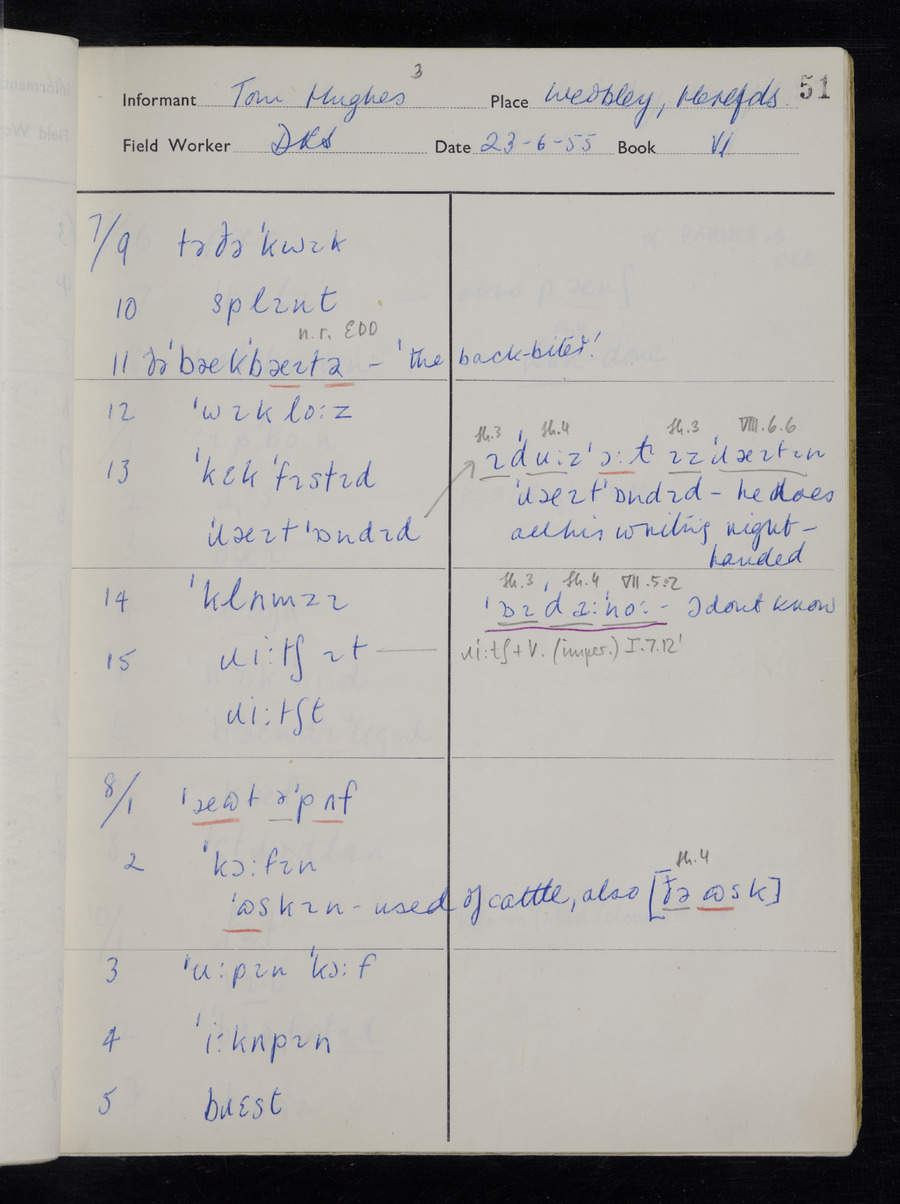 3
Informant Tom Hughes Place Weobley, Herefds. 51
Field Worker DRS Date 23-6-55 Book VI
7/9 təðə ˈkwɪk
10 splɪnt
n.r. EDD
11 ðə ˈbækˈbəɪtə – 'the back-biter'
12 ˈwɪk loːz
13 ˈkɛk ˈfɪstɪd
ˈɹəɪt ˈɒndɪd
sh.3 sh.4 sh.3 VIII.6.6
ɪ duːz ˈɔːt ɪz ˈɹəɪtɪn
ˈɹəɪt ˈɒndɪd – he does
all his writing right-
handed
14 ˈklʌmzɪ
sh.3, sh.4 VII.5.2
– I dont know
15 ɹiːtʃ ɪt
ɹiːtʃ + V. (imper.) I.7.12
ɹiːtʃt
8/1 ˈəɷt ə ˈpʌf
2 ˈkɔːfɪn
sh.4
ˈɷskɪn – used of cattle, also [ðə ɷsk]
3 ˈuːpɪn ˈkɔːf
4 ˈiːkʌpɪn
5 bɹɛst